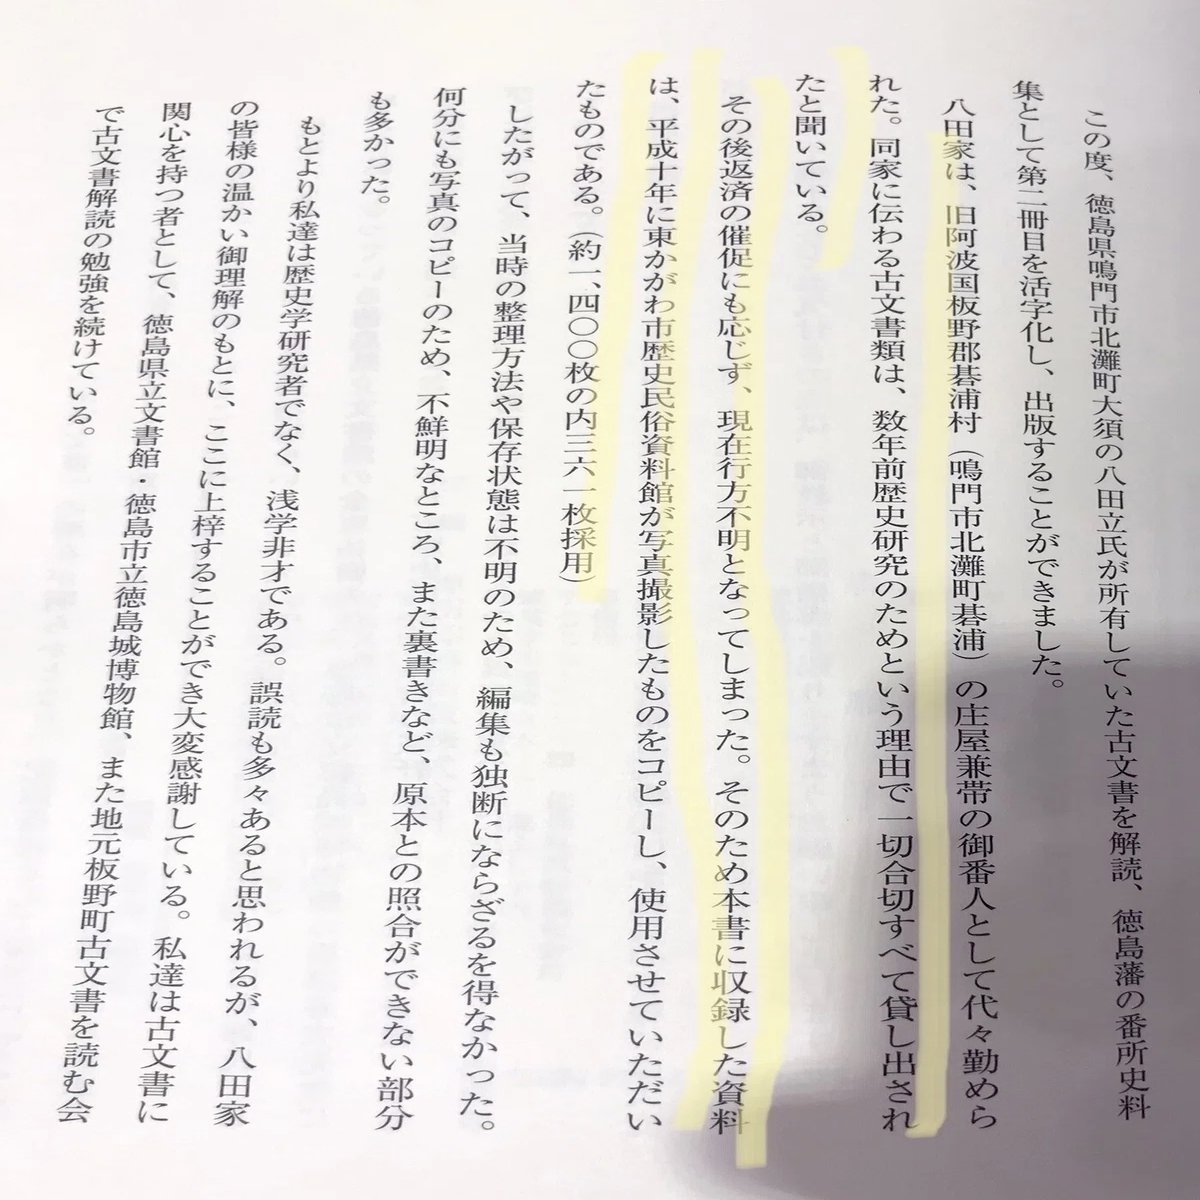 この度、徳島県鳴門市北灘町大須の八田立氏が所有していた古文書を解読、徳島藩の番所史料
集として第二冊目を活字化し、出版することができました。
八田家は、旧阿波国板野郡碁浦村（鳴門市北灘町碁浦）の庄屋兼帯の御番人として代々勤めら
れた。同家に伝わる古文書類は、数年前歴史研究のためという理由で一切合切すべて貸し出され
たと聞いている。
その後返済の催促にも応じず、現在行方不明となってしまった。そのため本書に収録した資料
は、平成十年に東かがわ市歴史民俗資料館が写真撮影したものをコピーし、使用させていただい
たものである。（約一、四〇〇枚の内三六一枚採用）
したがって、当時の整理方法や保存状態は不明のため、編集も独断にならざるを得なかった。
何分にも写真のコピーのため、不鮮明なところ、また裏書きなど、原本との照合ができない部分
も多かった。
もとより私達は歴史学研究者でなく、浅学非才である。誤読も多々あると思われるが、八田家
の皆様の温かい御理解のもとに、ここに上梓することができ大変感謝している。私達は古文書に
関心を持つ者として、徳島県立文書館・徳島市立徳島城博物館、また地元板野町古文書を読む会
で古文書解読の勉強を続けている。